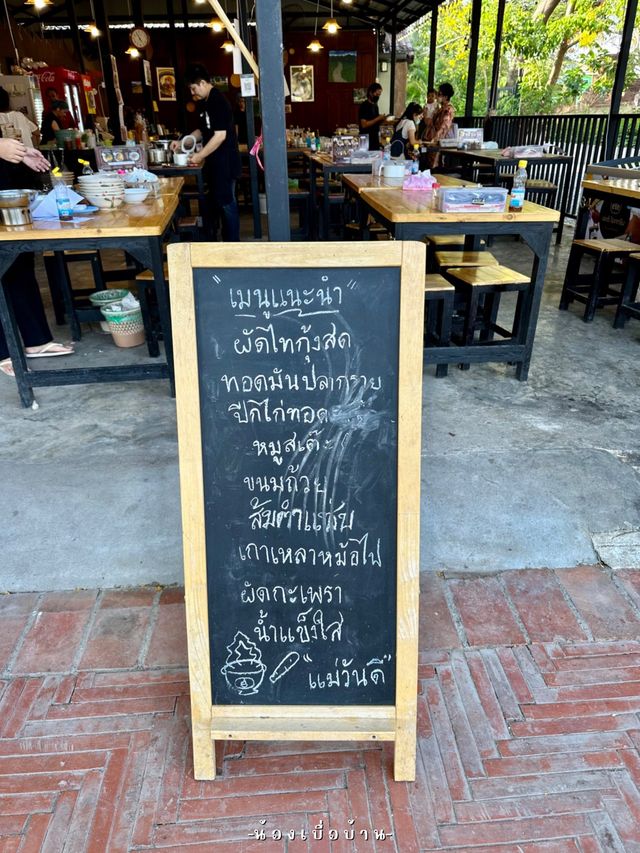 "เมนูแนะนำ"
ผัดไทกุ้งสด
ทอดมันปลากราย
ปีกไก่ทอด
หมูสเต๊ะ
ขนมถ้วย
ส้มตำแซ่บ
เกาเหลาหม้อไฟ
ผัดกะเพรา
น้ำแข็งใส
"แม่วันดี"
-น้องเบื่อบ้าน-